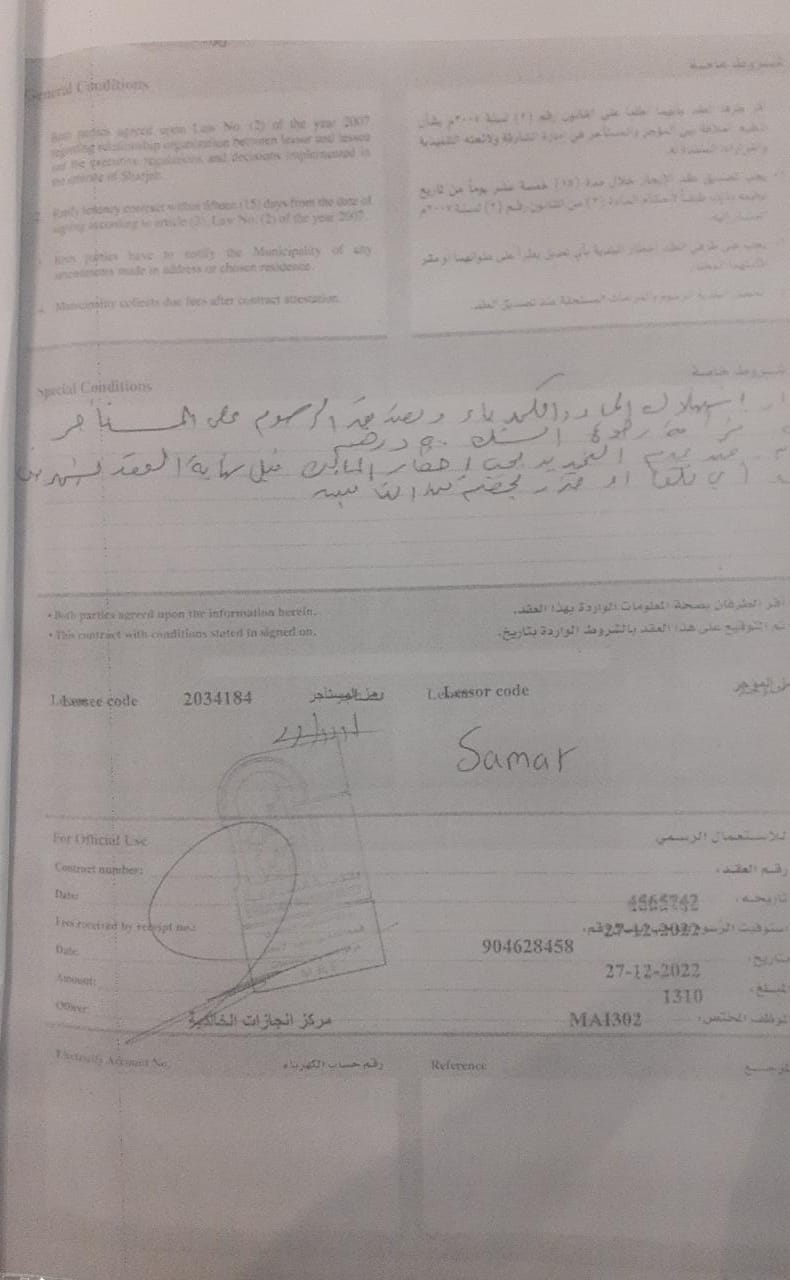 General Conditions
شروط عامة
Both parties agreed upon Law No. (2) of the year 2007
regarding relationship organization between lessor and lessee
and the executive regulations and decisions implemented in
the emirate of Sharjah.
أقر طرفا العقد بأنهما اطلعا على القانون رقم (٢) لسنة ٢٠٠٧م بشأن
تنظيم العلاقة بين المؤجر والمستأجر في إمارة الشارقة ولائحته التنفيذية
والقرارات المنفذة له.
Ratify tenancy contract within fifteen (15) days from the date of
signing according to article (3), Law No. (2) of the year 2007.
يجب تصديق عقد الإيجار خلال مدة (١٥) خمسة عشر يوماً من تاريخ
طبقاً لأحكام المادة (٣) من القانون رقم (٢) لسنة ٢٠٠٧م
Both parties have to notify the Municipality of any
made in address or chosen residence.
يجب على طرفي العقد إخطار البلدية بأي تعديل يطرأ على عنوانهما أو مقر
4. Municipality collects due fees after contract attestation.
البلدية الرسوم والغرامات المستحقة عند تصديق العقد.
Special Conditions
شروط خاصة
استهلاك الماء والكهرباء و الرسوم على المستأجر
غرامة رجوع الشيك درهم
عدم التجديد يجب إحضار المالك قبل نهاية العقد بشهرين
أي أو من التأمين
• Both parties agreed upon the information herein.
أقر الطرفان بصحة المعلومات الواردة بهذا العقد.
• This contract with conditions stated in signed on.
تم التوقيع على هذا العقد بالشروط الواردة بتاريخ.
Lessee code 2034184 رمز المستأجر
Lessor code المؤجر
Samar
For Official Use
للاستعمال الرسمي
Contract number:
رقم العقد:
Date: 4565742 تاريخه:
Fees received by receipt no.: 27-12-2022 استوفيت الرسوم رقم:
904628458
Date: 27-12-2022 بتاريخ:
Amount: 1310 مبلغ:
Officer مركز انجازات الخالدية MAI302 الموظف المختص:
Electricity Account No. رقم حساب الكهرباء
Reference